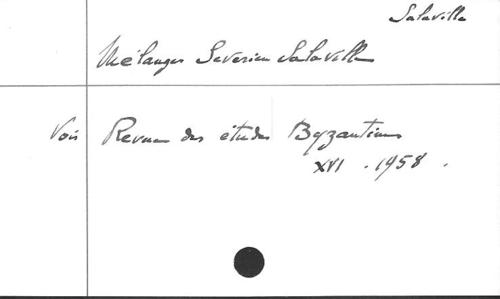 Salaville
Mélanges Severien Salaville
Voir Revue des études Byzantines
XVI . 1958 .